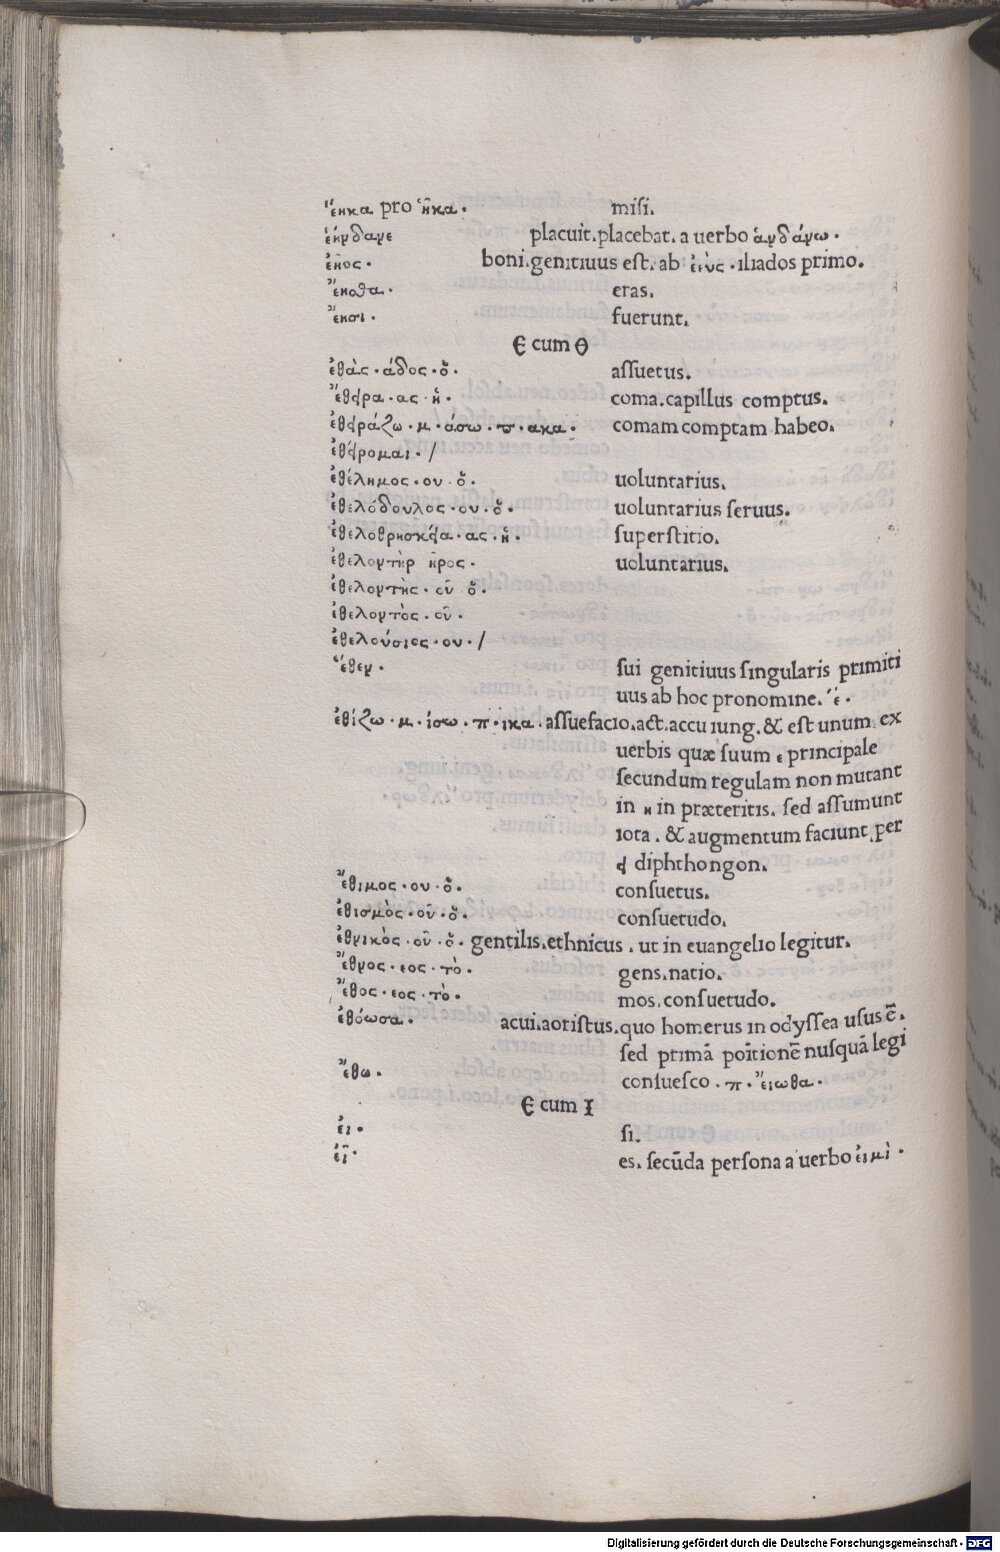 ἕηκα pro ἧκα. misi.
ἑήνδανε placuit.placebat. a uerbo ἁνδάνω.
ἐῆος. boni.genitiuus est. ab ἐύς. iliados primo.
ἔησθα. eras.
ἔησι. fuerunt.
Є cum Θ
ἐθὰς. άδος. ὁ. assuetus.
ἔθειρα. ας. ἡ. coma.capillus comptus.
ἐθειράζω. μ. άσω. π. ακα. comam comptam habeo.
ἐθείρομαι. /
ἐθέλημος. ου. ὁ. uoluntarius.
ἐθελόδουλος. ου. ὁ. uoluntarius seruus.
ἐθελοθρησκεία. ας. ἡ. superstitio.
ἐθελοντὴρ ῆρος. uoluntarius.
ἐθελοντὴς. οῦ ὁ.
ἐθελοντὸς. οῦ.
ἐθελούσιος. ου. /
ἕθεν. sui genitiuus singularis primiti
uus ab hoc pronomine. ἕ.
ἐθίζω. μ. ίσω. π. ικα. assuefacio.act.accu iung. & est unum ex
uerbis quæ suum ε principale
secundum regulam non mutant
in η in præteritis. sed assumunt
iota. & augmentum faciunt per
ει diphthongon.
ἔθιμος. ου. ὁ. consuetus.
ἐθισμὸς. οῦ. ὁ. consuetudo.
ἐθνικὸς. οῦ. ὁ. gentilis.ethnicus. ut in euangelio legitur.
ἔθνος. εος. τὸ. gens.natio.
ἔθος. εος. τὸ. mos.consuetudo.
ἐθόωσα. acui.aoristus.quo homerus in odyssea usus ē.
sed primā poitionē nusquā legi
ἔθω. consuesco. π. εἴωθα.
Є cum I
εἰ. si.
εἶ. es. secūda persona a uerbo εἰμὶ.
Digitalisierung gefördert durch die Deutsche Forschungsgemeinschaft - DFG